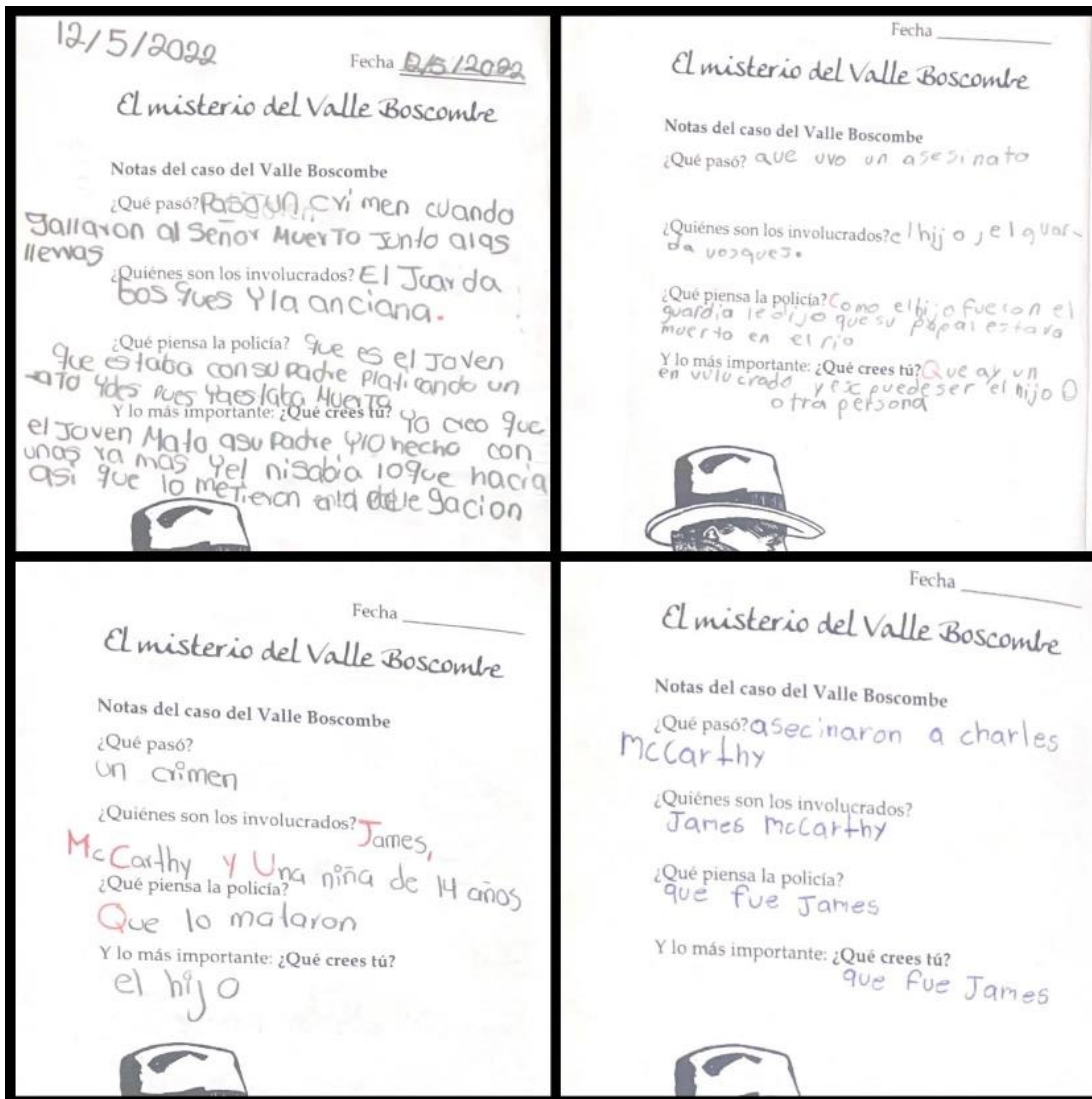 12/5/2022
Fecha 12/5/2022
El misterio del Valle Boscombe
Notas del caso del Valle Boscombe
¿Qué pasó? Pasó un crimen cuando
gallaron al Señor Muerto Junto alas
llervas
¿Quiénes son los involucrados? El Juarda
bosques Y la anciana.
¿Qué piensa la policía? que es el Joven
que estaba con su padre Platicando un
rato Ydes pues Yaestaba Muerto
Y lo más importante: ¿Qué crees tú? Yo creo que
el Joven Mato asu Padre, Ylo hecho con
unas ramas Yel nisabia loque hacia
asi que lo metieron enla delegacion
Fecha
El misterio del Valle Boscombe
Notas del caso del Valle Boscombe
¿Qué pasó? que uvo un asesinato
¿Quiénes son los involucrados? el hijo, el guar-
da vosques.
¿Qué piensa la policía? Como el hijo fueron el
guardia le dijo que su papai estava
muerto en el rio
Y lo más importante: ¿Qué crees tú? Que ay un
en vulucrado y puede ser el hijo O
otra persona
Fecha
El misterio del Valle Boscombe
Notas del caso del Valle Boscombe
¿Qué pasó?
un crimen
¿Quiénes son los involucrados? James,
McCarthy y Una niña de 14 años
¿Qué piensa la policía?
Que lo mataron
Y lo más importante: ¿Qué crees tú?
el hijo
Fecha
El misterio del Valle Boscombe
Notas del caso del Valle Boscombe
¿Qué pasó? asecinaron a charles
McCarthy
¿Quiénes son los involucrados?
James McCarthy
¿Qué piensa la policía?
que fue James
Y lo más importante: ¿Qué crees tú?
que fue James